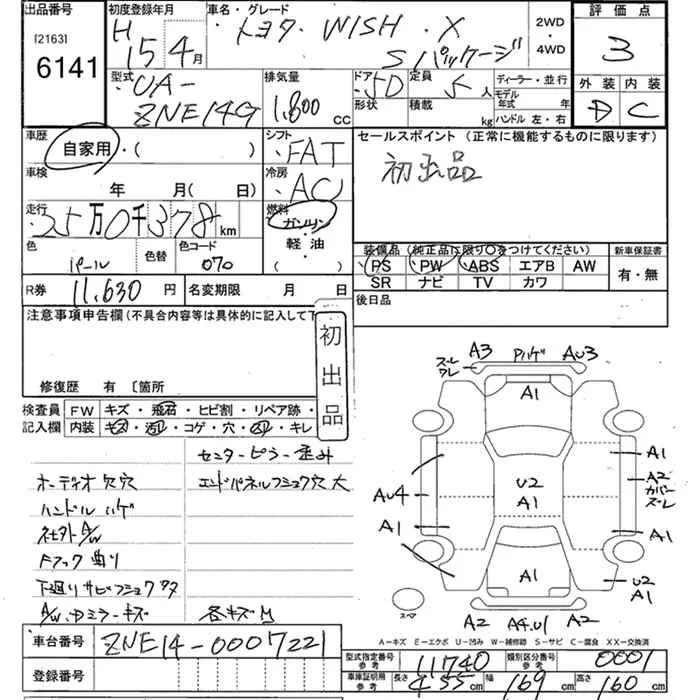 出品番号
[2163]
6141
初度登録年月
H 15年4月
車名・グレード
トヨタ・WISH・X
Sパッケージ
2WD
・
4WD
評価点
3
外装 内装
D C
型式
UA-
ZNE14G
排気量
1,800 cc
ドア
・5D
形状
定員
5人
積載
kg
ディーラー・並行
モデル
年式 年
ハンドル 左・右
車歴
自家用・( )
シフト
・FAT
セールスポイント(正常に機能するものに限ります)
初出品
車検
年 月( 日)
冷房
・AC
走行
35万0千378km
燃料
ガソリン
・
軽油
( )
色
パール
色替
色コード
070
装備品(純正品に限り○をつけてください)
PS PW ABS エアB AW
SR ナビ TV カワ
新車保証書
有・無
R券 11,630円
名変期限 月 日
後日品
注意事項申告欄(不具合内容等は具体的に記入して下
初出品
修復歴 有 〔箇所
検査員
記入欄
FW キズ・飛石・ヒビ割・リペア跡・
内装 キズ・・コゲ・穴・・キレ
センターピラー歪み
オーディオ欠穴
エンドパネルフショク穴大
ハンドルハゲ
Fフック曲り
下廻りサビフショク
A/W・Dミラーキズ
各キズ
ズレ
ワレ
A3 バハゲ AU3
A1
A1
A2
カバー
ズレ
AU4
U2
A1
A1
A1
A1
U2
A1
スペア
A2 A4.U1 A2
A-キズ E-エクボ U-凹み W-補修跡 S-サビ C-腐食 XX-交換済
車台番号 ZNE14-0007221
登録番号
型式指定番号
参考
11740
類別区分番号
参考
0001
車庫証明用
参考
長さ 455cm 幅 169cm 高さ 160cm